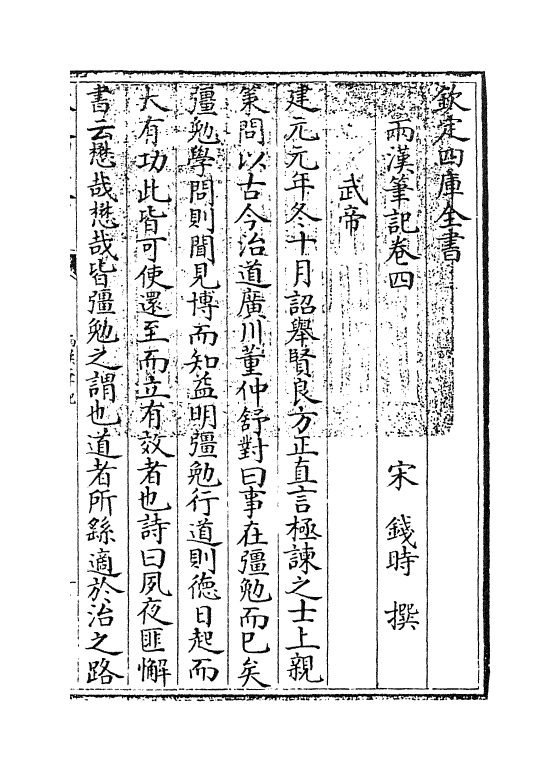 欽定四庫全書
兩漢筆記卷四
宋 錢時 撰
武帝
建元元年冬十月詔舉賢良方正直言極諫之士上親
策問以古今治道廣川董仲舒對曰事在彊勉而已矣
彊勉學問則聞見博而知益明彊勉行道則德日起而
大有功此皆可使還至而立有效者也詩曰夙夜匪懈
書云懋哉懋哉皆彊勉之謂也道者所繇適於治之路